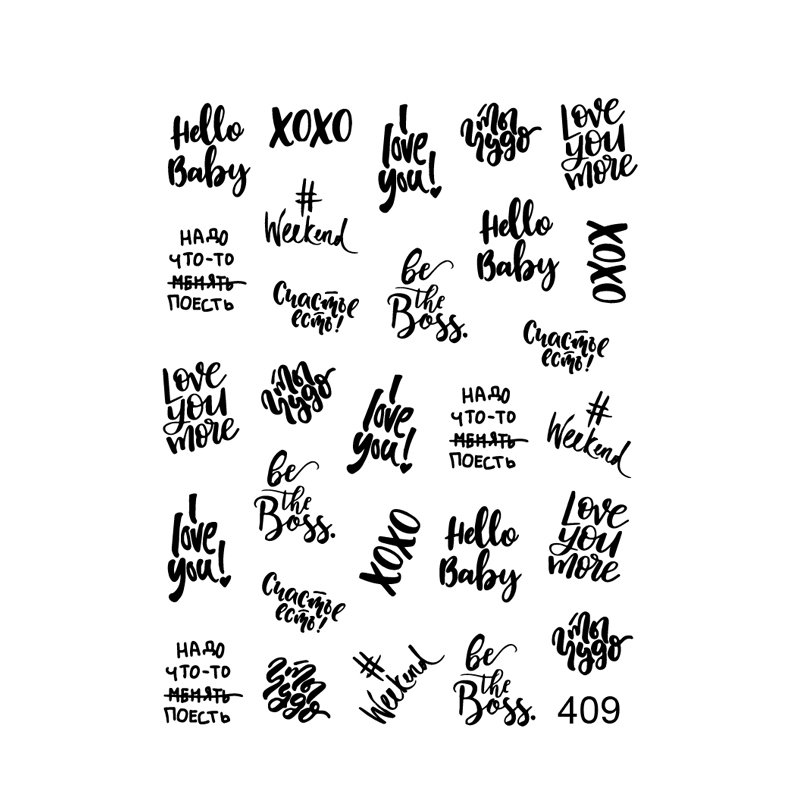 Hello
Baby
XOXO
I
love
you!
ты
чудо
Love
you
more
#
Weekend
НАДО
ЧТО-ТО
МЕНЯТЬ
ПОЕСТЬ
Счастье
есть!
be
the
Boss.
Hello
Baby
XOXO
Счастье
есть!
Love
you
more
ты
чудо
I
love
you!
НАДО
ЧТО-ТО
МЕНЯТЬ
ПОЕСТЬ
#
Weekend
be
the
Boss.
I
love
you!
XOXO
Hello
Baby
Love
you
more
Счастье
есть!
ты
чудо
НАДО
ЧТО-ТО
МЕНЯТЬ
ПОЕСТЬ
ты
чудо
#
Weekend
be
the
Boss.
409